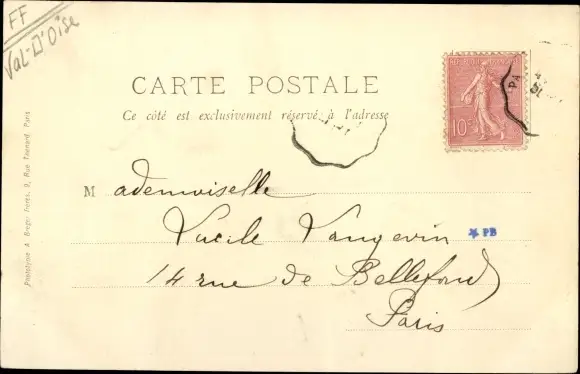 FF
Val-D'Oise
CARTE POSTALE
Ce côté est exclusivement réservé à l'adresse
REPUBLIQUE FRANÇAISE
10c
PA
Mademoiselle
Lucile Vangevin
PB
14 rue de Bellefond
Paris
Phototypie A. Breger Frères, 9, Rue Thénard, Paris